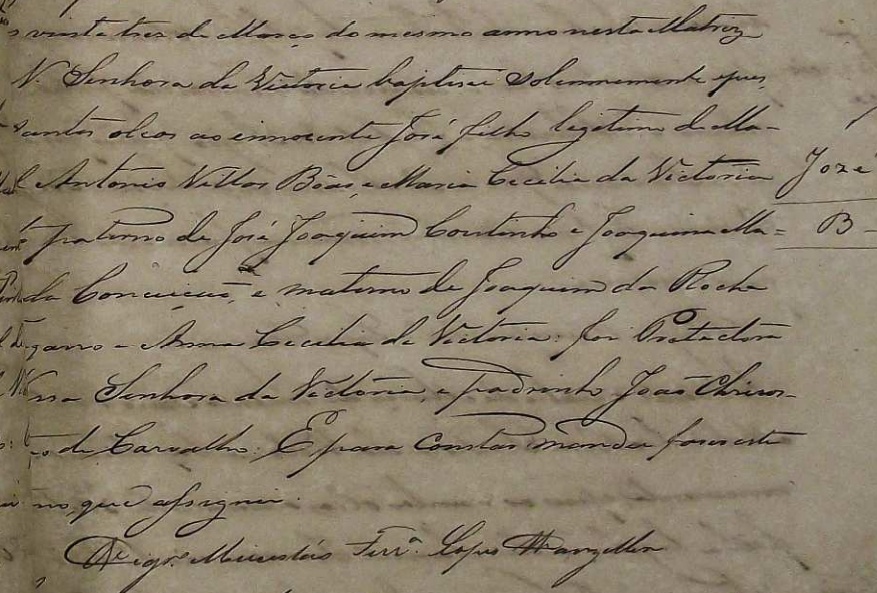 vinte tres de Março do mesmo anno nesta Matriz
N. Senhora da Victoria baptisei solemnemente e puz
santos oleos ao innocente José filho legitimo de Ma-
l Antonio Villas Bôas e Maria Cecilia da Victoria
José
paterno de José Joaquim Coutinho e Joaquina Ma=
B
da Conceicão, e materno de Joaquim da Rocha
e Anna Cecilia da Victoria: foi Protectora
Senhora da Victoria, e padrinho João Chrisos-
de Carvalho. E para constar mandei faser este
que assignei.
Ferrª. Lopes Wanzeller